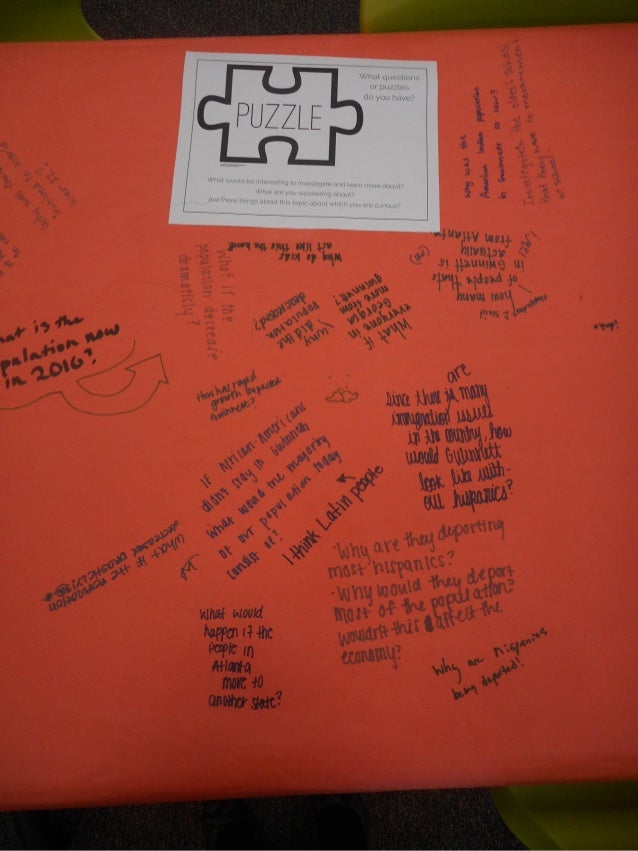 What questions
or puzzles
do you have?
PUZZLE
What would be interesting to investigate and learn more about?
What are you wondering about?
Are there things about this topic about which you are curious?
Why was the
American Indian population
in Gwinnett so low?
Investigateh the oldest school
that they have to measurement
or school.
how many
of people that's
in Gwinnett is
actually
from Atlanta
why do kids
act like this the hood
What if the
population decrease
dramaticlly
?
What if
everyone in
Georgia
more from
gwinnett?
Why
did the
population
decreased?
at is the
pulation now
in 2016?
How has rapid
growth impacted
Gwinnett?
If African-Americans
didn't stay in Gwinnett
what would the majority
of our population today
consist of?
I think Latin people
are
Since there is many
immigration issues
in the country, how
would Gwinnett
look like with-
out hispanics?
What if the population
decreased DRASTICLY?!@#
• Why are they deporting
most hispanics?
• Why would they deport
most of the population?
Wouldn't this affect the
economy?
Why are hispanics
being deported!
What would
happen if the
People in
Atlanta
move to
another state?